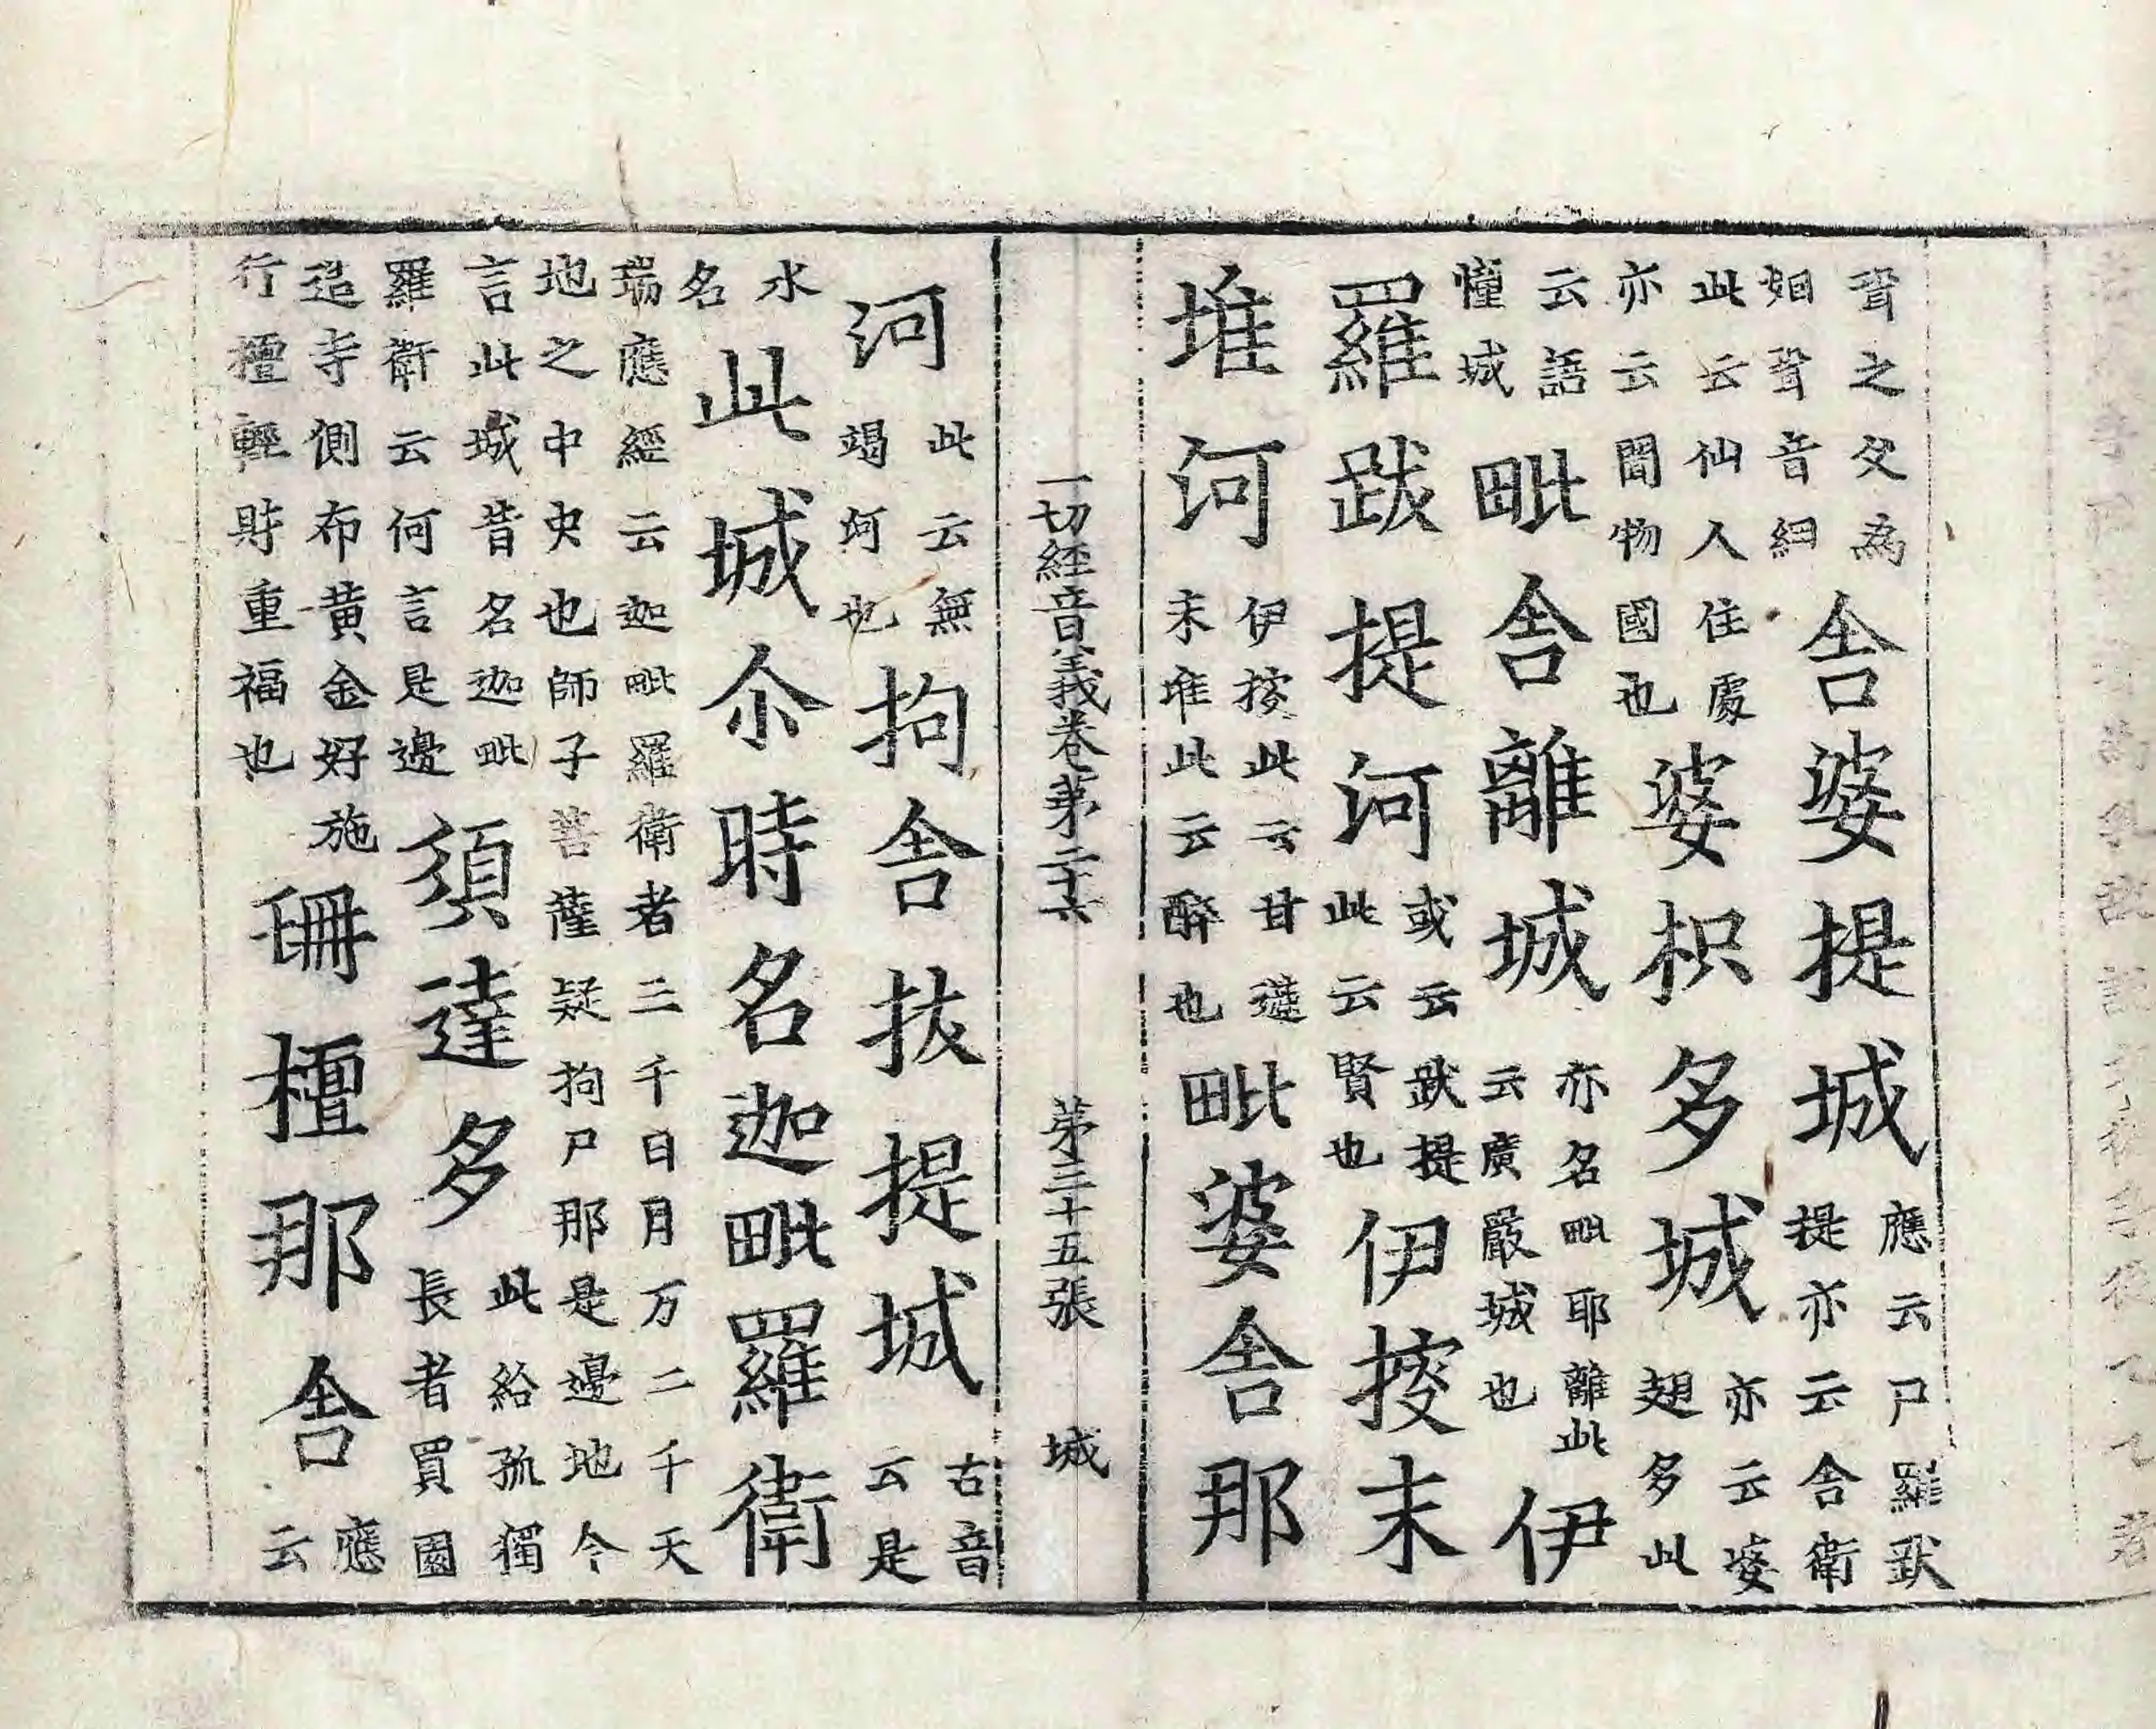 聲之父為
姐聲音細
舍婆提城
應云尸羅跋
提亦云舍衛
此云仙人住處
亦云聞物國也
婆枳多城
亦云婆
翅多此
云語
憧城
毗舍離城
亦名毗耶離此
云廣嚴城也
伊
羅跋提河
或云跋提
此云賢也
伊捘末
堆河
伊捘此云甘蓮
末堆此云醉也
毗婆舍那
一切經音義卷苐二十六 苐三十五張 城
河
此云無
竭河也
拘舍拔提城
古音
云是
水
名
此城尒時名迦毗羅衛
瑞應經云迦毗羅衛者三千日月万二千天
地之中央也師子菩薩疑拘尸那是邊地今
言此城昔名迦毗
羅衛云何言是邊
須達多
此給孤獨
長者買園
造寺側布黃金好施
行檀輕財重福也
珊檀那舍
應
云